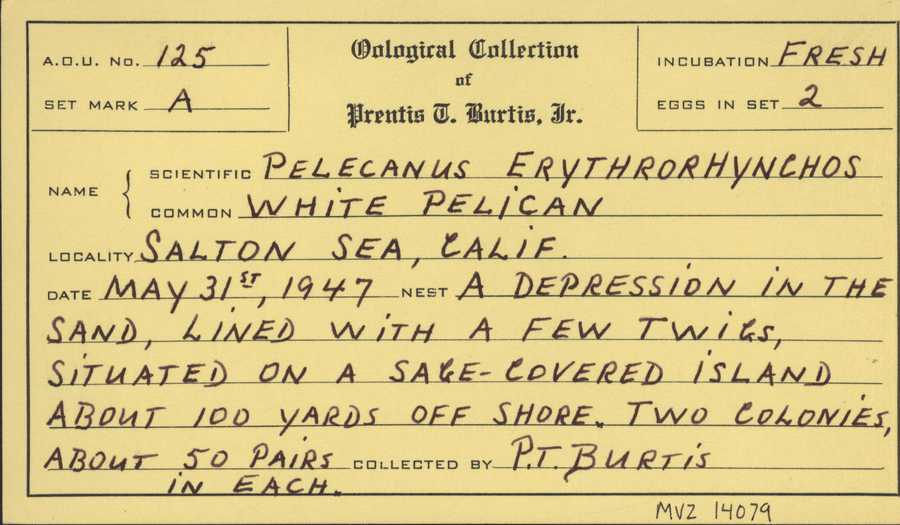 A.O.U. NO. 125
SET MARK A
Oological Collection
of
Prentis T. Burtis, Jr.
INCUBATION FRESH
EGGS IN SET 2
NAME { SCIENTIFIC PELECANUS ERYTHRORHYNCHOS
COMMON WHITE PELICAN
LOCALITY SALTON SEA, CALIF.
DATE MAY 31ST, 1947 NEST A DEPRESSION IN THE
SAND, LINED WITH A FEW TWIGS,
SITUATED ON A SAGE-COVERED ISLAND
ABOUT 100 YARDS OFF SHORE. TWO COLONIES,
ABOUT 50 PAIRS COLLECTED BY P.T. BURTIS
IN EACH.
MVZ 14079